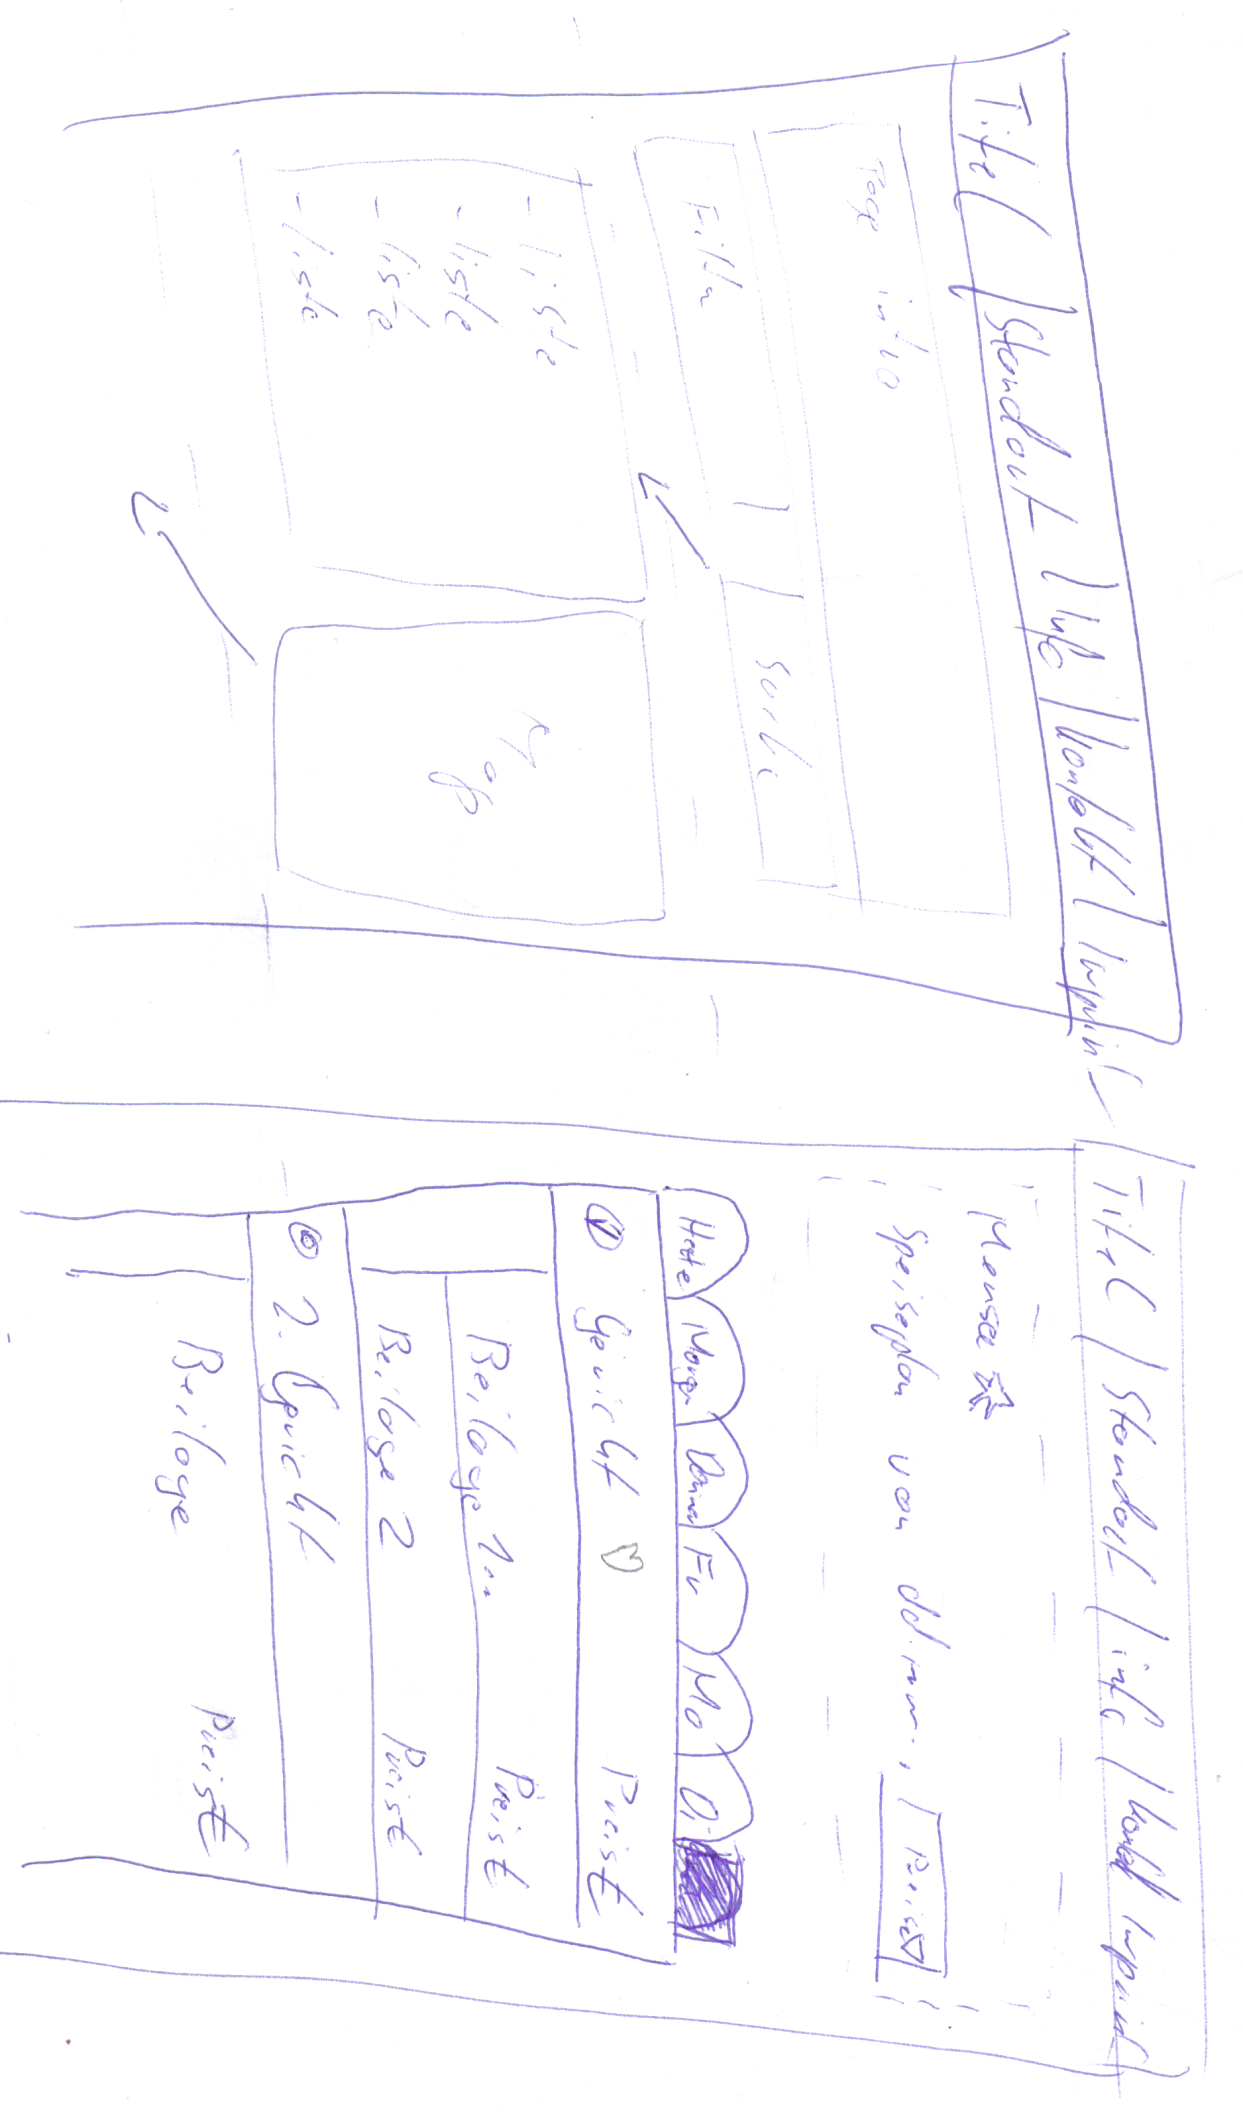 Titel | Standort | Info | Kontakt | Imprint
Page intro
Filter
Suche
- liste
- liste
- liste
- liste
Map
Titel | Standort | info | Kontakt Imprint
Mensa
Speiseplan von
Heute Morgen Donner Fr Mo Di
Gericht Preis €
Beilage 1 Preis €
Beilage 2 Preis €
2. Gericht
Beilage Preis €